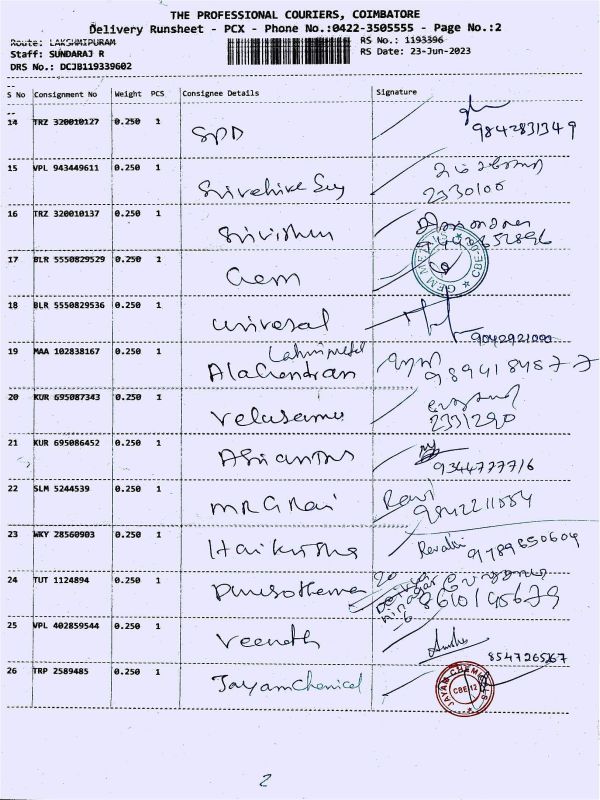 THE PROFESSIONAL COURIERS, COIMBATORE
Delivery Runsheet - PCX - Phone No.:0422-3505555 - Page No.:2
Route: LAKSHMIPURAM
RS No.: 1193396
Staff: SUNDARAJ R
RS Date: 23-Jun-2023
DRS No.: DCJB119339602
S No Consignment No Weight PCS Consignee Details Signature
14 TRZ 320010127 0.250 1 SPD 9842831349
15 VPL 943449611 0.250 1 2330100
16 TRZ 320010137 0.250 1 Srivishnu
17 BLR 5550829529 0.250 1 Gem
18 BLR 5550829536 0.250 1 Universal 9042921000
19 MAA 102838167 0.250 1 9894184577
20 KUR 695087343 0.250 1 Velusamy 2331290
21 KUR 695086452 0.250 1 9344777716
22 SLM 5244539 0.250 1 MR G Ravi Ravi 9842211054
23 WKY 28560903 0.250 1 Harikrishna Revathi 9789650604
24 TUT 1124894 0.250 1 8610195679
25 VPL 402859544 0.250 1 8547265267
26 TRP 2589485 0.250 1 Jayam Chemical JAYAM CHEMICALS CBE 12
2